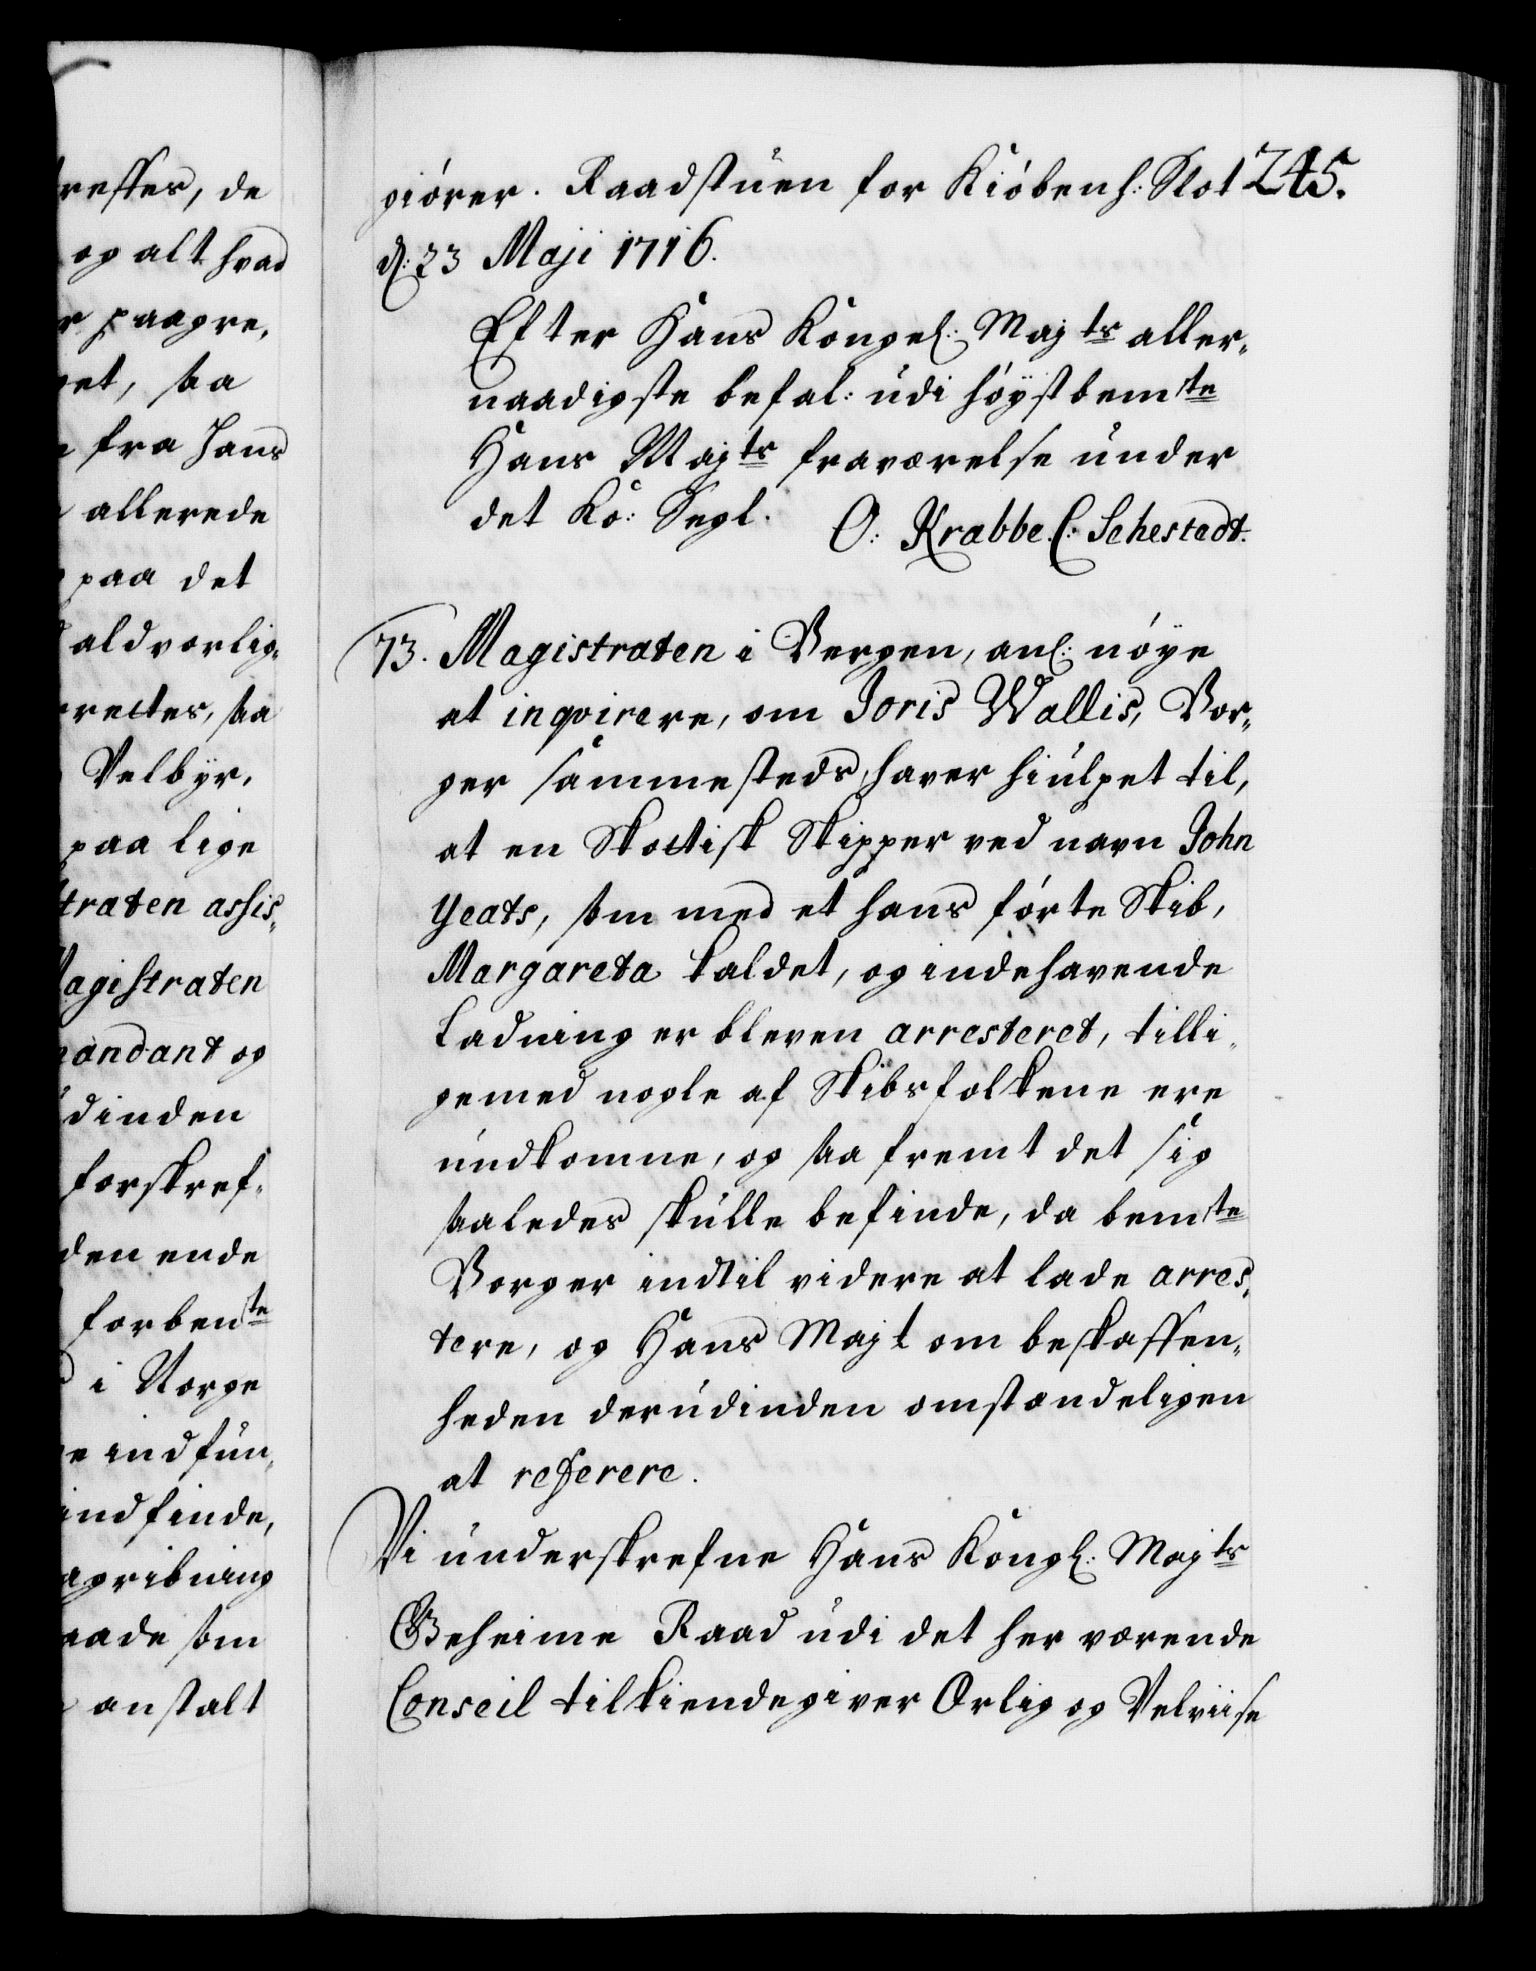 reffes, de
og alt hvad
r paagre,
get, saa
fra Hans
allerede
paa det
aldvorlig,
rectes, saa
Velbÿr,
paa lige
traten assis,
agistraten
andant og
dinden
forskref,
den ende
forbente
i Norge
e indfun,
indfinde,
agribning
aade som
anstalt
giórer. Raadstuen for Kióbenh: Slot 245.
d: 23 Maji 1716.
Efter Hans Kongel: Majts aller,
naadigste befal: udi höÿstbemte
Hans Majts fraværelse under
det Ko: Segl. O: Krabbe. C: Sehestedt.
73. Magistraten i Bergen, anl: nöÿe
at inqvirere, om Joris Wallis, Bor,
ger sammesteds, haver hiulpet til,
at en Skottisk Skipper ved navn John
Yeats, som med et hans förte Skib,
Margareta kaldet, og indehavende
Ladning er bleven arresteret, tilli,
gemed nogle af Skibsfolkene ere
undkomne, og saa fremt det sig
saaledes skulle befinde, da bemte
Borger indtil videre at lade arres,
tere, og Hans Majt om beskaffen,
heden derudinden omstændeligen
at referere.
Vi underskrefne Hans Kongl: Majts
Geheime Raad udi det her værende
Conseil tilkiendegiver Ærlig og Velviise